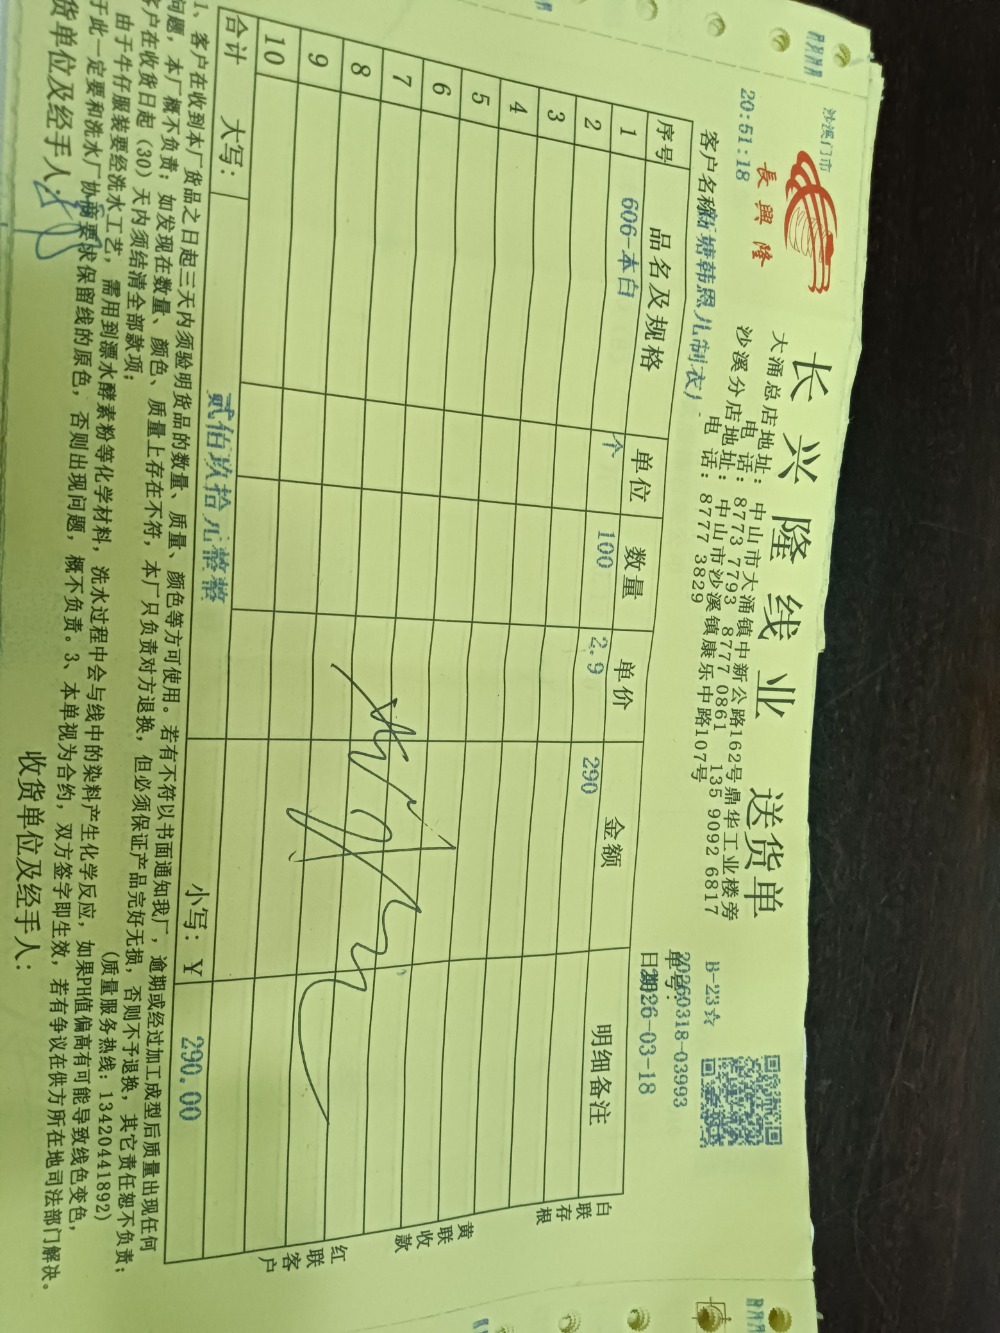 沙溪门市
20:51:18
長興隆
长兴隆线业 送货单
大涌总店地址：中山市大涌镇中新公路162号鼎华工业楼旁
电话：8773 7793 8777 0861 135 9092 6817
沙溪分店地址：中山市沙溪镇康乐中路107号
电话：8777 3829
B-23☆
单号：20260318-03993
日期：2026-03-18
客户名称：新塘韩恩儿制衣厂
序号 品名及规格 单位 数量 单价 金额 明细备注
1 606-本白 个 100 2.9 290
2
3
4
5
6
7
8
9
10
合计 大写： 贰佰玖拾元整整 小写：￥ 290.00
白联存根
黄联收款
红联客户
1、客户在收到本厂货品之日起三天内须验明货品的数量、质量、颜色等方可使用。若有不符以书面通知我厂，逾期或经过加工成型后质量出现任何
问题，本厂概不负责；如发现在数量、颜色、质量上存在不符，本厂只负责对方退换，但必须保证产品完好无损，否则不予退换，其它责任恕不负责；
客户在收货日起（30）天内须结清全部款项； （质量服务热线：13420441892）
由于牛仔服装要经洗水工艺，需用到漂水酵素粉等化学材料，洗水过程中会与线中的染料产生化学反应，如果PH值偏高有可能导致线色变色，
于此一定要和洗水厂协商要求保留线的原色，否则出现问题，概不负责。3、本单视为合约，双方签字即生效，若有争议在供方所在地司法部门解决。
货单位及经手人： 收货单位及经手人：